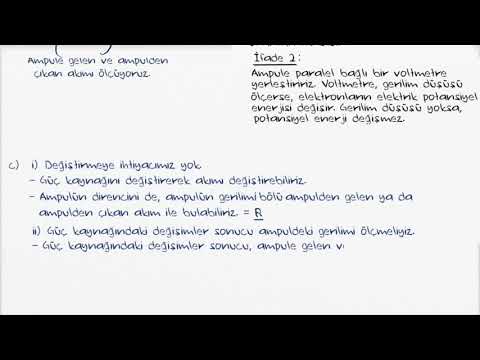 Ampule gelen ve ampulden
çıkan akımı ölçüyoruz.
İfade 2:
Ampule paralel bağlı bir voltmetre
yerleştiririz. Voltmetre, gerilim düşüşü
ölçerse, elektronların elektrik potansiyel
enerjisi değişir. Gerilim düşüşü yoksa,
potansiyel enerji değişmez.
c) i) Değiştirmeye ihtiyacımız yok.
- Güç kaynağını değiştirerek akımı değiştirebiliriz.
- Ampulün direncini de, ampulün gerilimi bölü ampulden gelen ya da
ampulden çıkan akım ile bulabiliriz. = R
ii) Güç kaynağındaki değişimler sonucu ampuldeki gerilimi ölçmeliyiz.
- Güç kaynağındaki değişimler sonucu, ampule gelen v